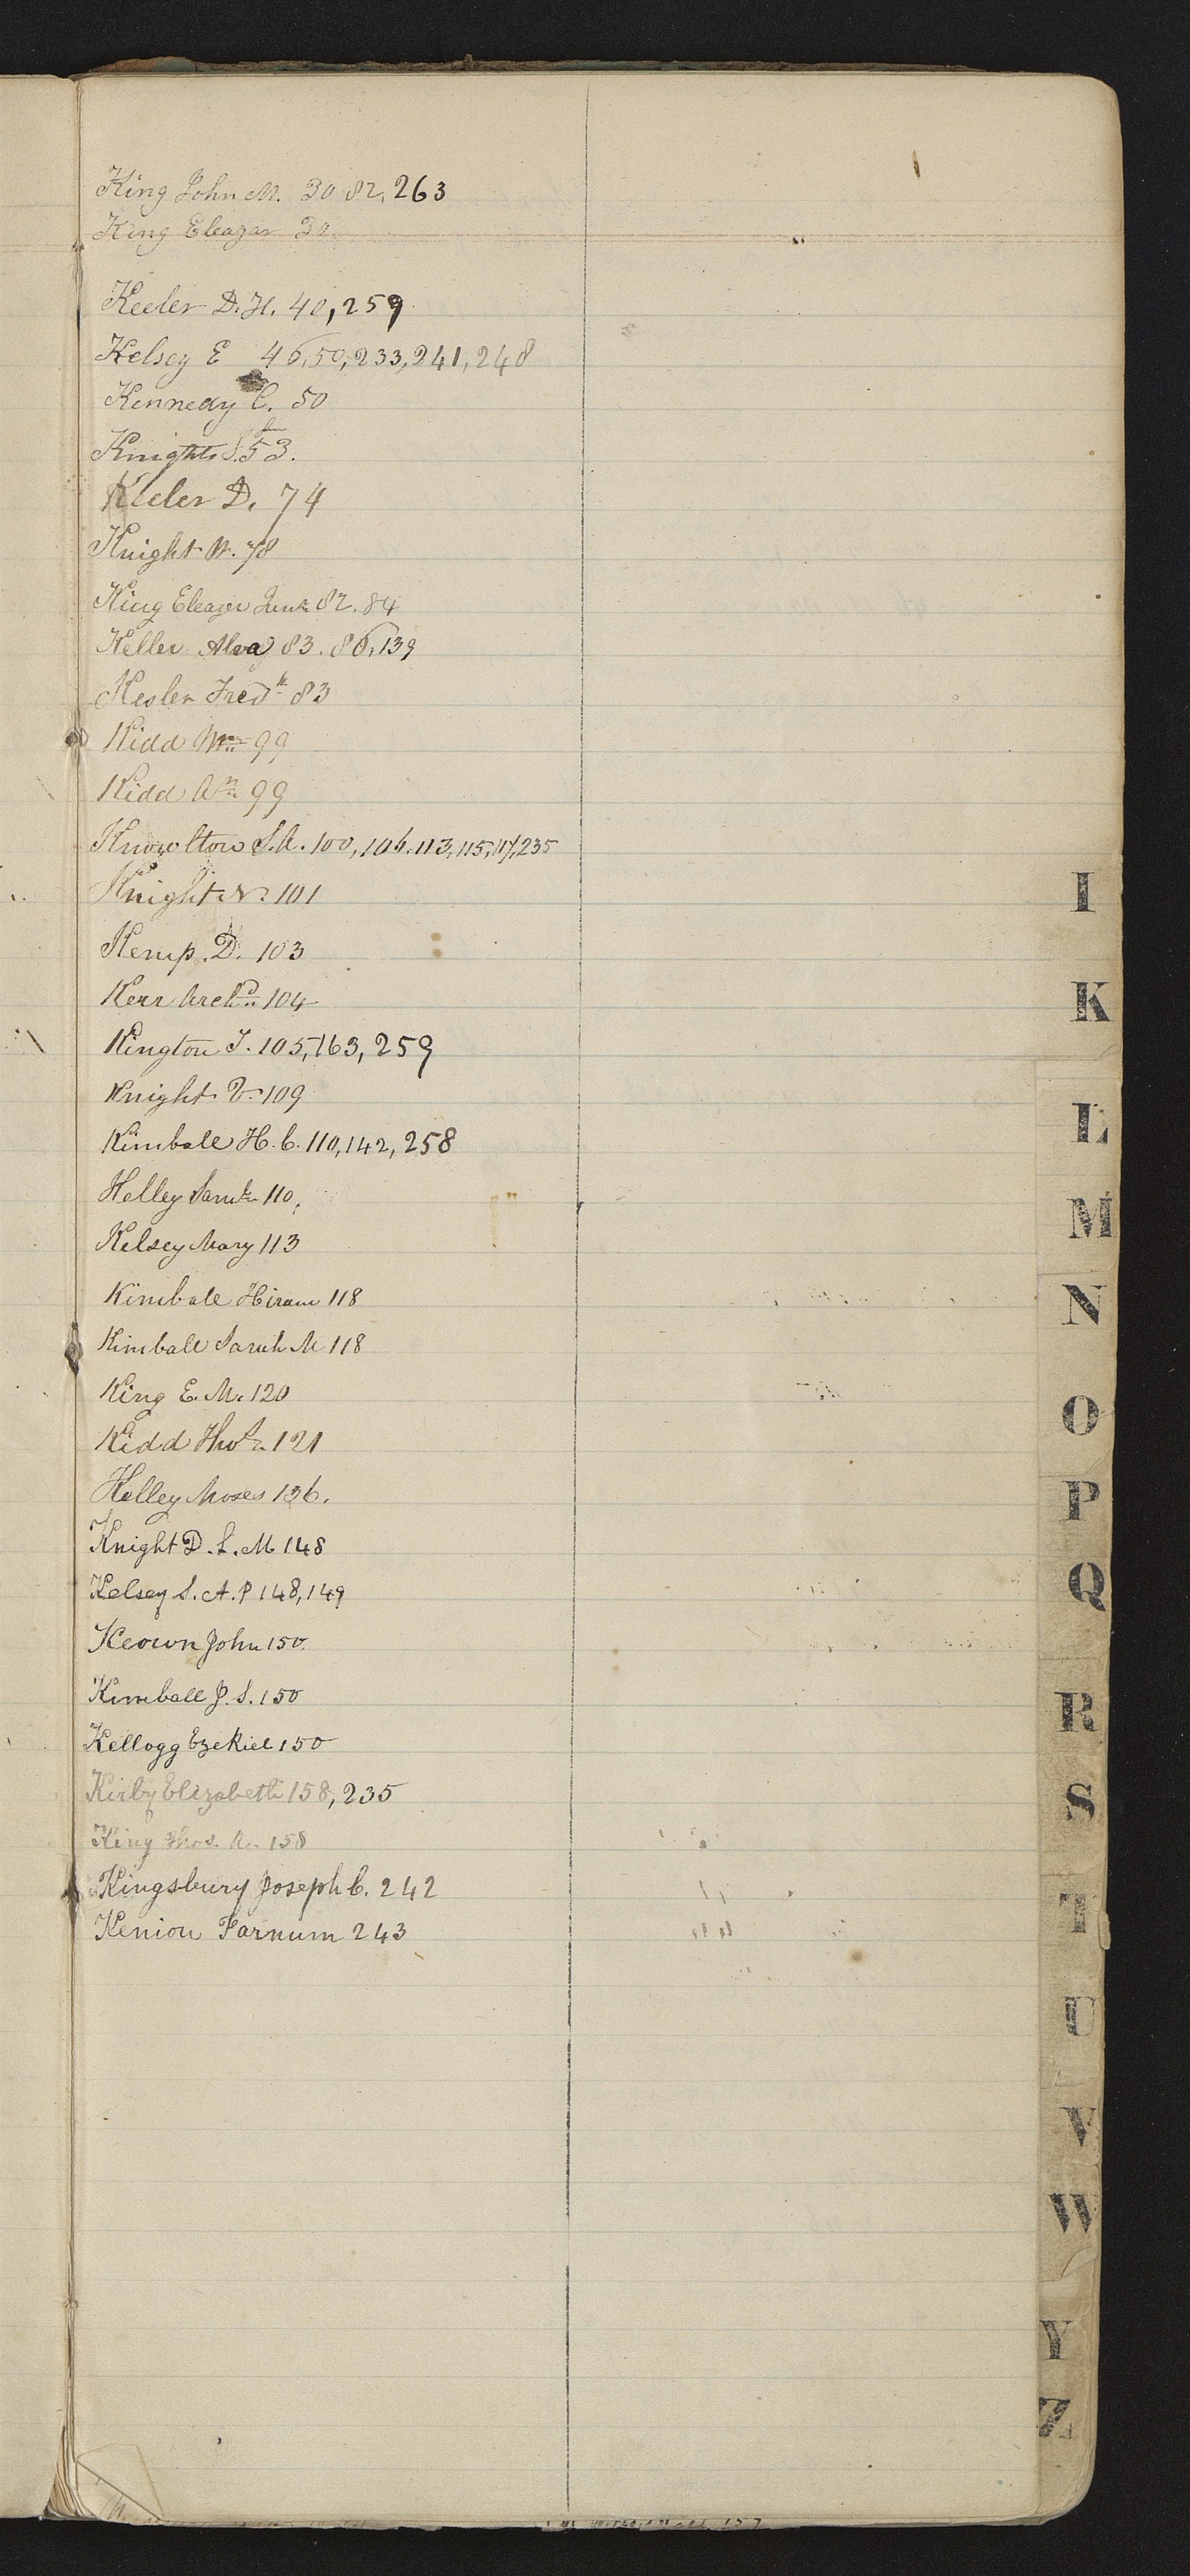 King John M. 30 82, 263
King Eleazar 30.
Keeler D. H. 40, 259
Kelsey E 46, 50, 233, 241, 248
Kennedy C. 50
Knights S. 53.
Keeler D. 74
Knight W. 78
King Eleazer Junr 82. 84
Keller Alva 83. 86, 139
Kesler Fredk 83
Kidd Wm 99
Kidd Am 99
Knowlton S. A. 100, 106. 113, 115, 117, 235
Knight N. 101
Kemp. D. 103
Kerr Archd 104
Kington T. 105, 163, 259
Knight V. 109
Kimball H. C. 110, 142, 258
Kelley Saml 110.
Kelsey Mary 113
Kimball Hiram 118
Kimball Sarah M 118
King E. M. 120
Kidd Thos 121
Kelley Moses 136.
Knight D. L. M 148
Kelsey S. A. P 148, 149
Keown John 150.
Kimball J. S. 150
Kellogg Ezekiel 150
Kirby Elizabeth 158, 235
King Thos. A. 158
Kingsbury Joseph C. 242
Kenion Farnum 243
I
K
L
M
N
O
P
Q
R
S
T
U
V
W
Y
Z